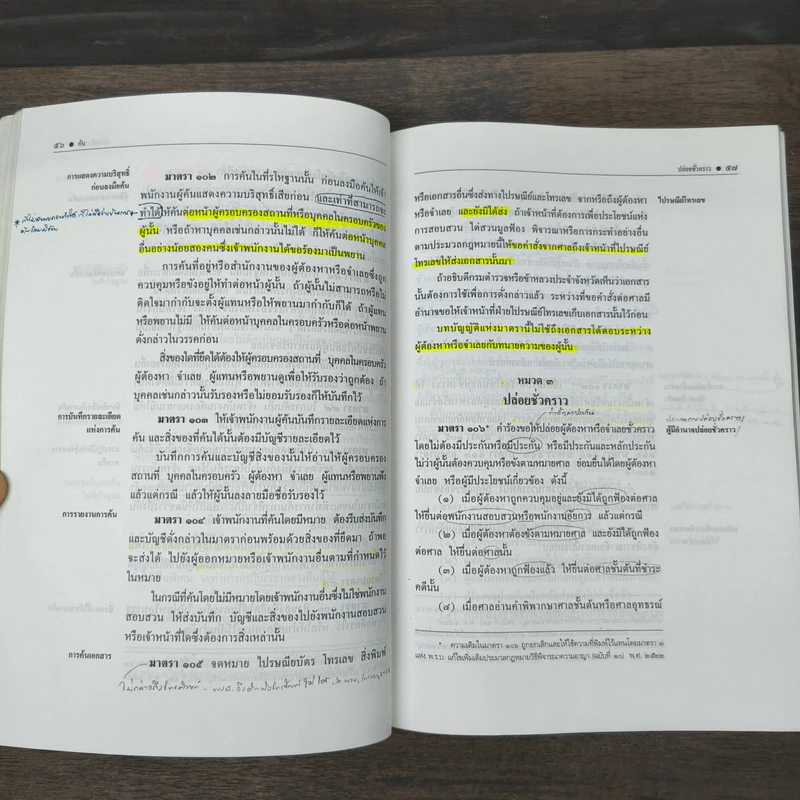 ๕๖ ● ค้น
การแสดงความบริสุทธิ์
ก่อนลงมือค้น
มาตรา ๑๐๒ การค้นในที่รโหฐานนั้น ก่อนลงมือค้นให้เจ้า
พนักงานผู้ค้นแสดงความบริสุทธิ์เสียก่อน และเท่าที่สามารถจะ
ทำได้ให้ค้นต่อหน้าผู้ครอบครองสถานที่หรือบุคคลในครอบครัวของ
ผู้นั้น หรือถ้าหาบุคคลเช่นกล่าวนั้นไม่ได้ ก็ให้ค้นต่อหน้าบุคคล
อื่นอย่างน้อยสองคนซึ่งเจ้าพนักงานได้ขอร้องมาเป็นพยาน
การค้นที่อยู่หรือสำนักงานของผู้ต้องหาหรือจำเลยซึ่งถูก
ควบคุมหรือขังอยู่ให้ทำต่อหน้าผู้นั้น ถ้าผู้นั้นไม่สามารถหรือไม่
ติดใจมากำกับจะตั้งผู้แทนหรือให้พยานมากำกับก็ได้ ถ้าผู้แทน
หรือพยานไม่มี ให้ค้นต่อหน้าบุคคลในครอบครัวหรือต่อหน้าพยาน
ดั่งกล่าวในวรรคก่อน
สิ่งของใดที่ยึดได้ต้องให้ผู้ครอบครองสถานที่ บุคคลในครอบครัว
ผู้ต้องหา จำเลย ผู้แทนหรือพยานดูเพื่อให้รับรองว่าถูกต้อง ถ้า
บุคคลเช่นกล่าวนั้นรับรองหรือไม่ยอมรับรองก็ให้บันทึกไว้
การบันทึกรายละเอียด
แห่งการค้น
มาตรา ๑๐๓ ให้เจ้าพนักงานผู้ค้นบันทึกรายละเอียดแห่งการ
ค้น และสิ่งของที่ค้นได้นั้นต้องมีบัญชีรายละเอียดไว้
บันทึกการค้นและบัญชีสิ่งของนั้นให้อ่านให้ผู้ครอบครอง
สถานที่ บุคคลในครอบครัว ผู้ต้องหา จำเลย ผู้แทนหรือพยานฟัง
แล้วแต่กรณี แล้วให้ผู้นั้นลงลายมือชื่อรับรองไว้
การรายงานการค้น
มาตรา ๑๐๔ เจ้าพนักงานที่ค้นโดยมีหมาย ต้องรีบส่งบันทึก
และบัญชีดั่งกล่าวในมาตราก่อนพร้อมด้วยสิ่งของที่ยึดมา ถ้าพอ
จะส่งได้ ไปยังผู้ออกหมายหรือเจ้าพนักงานอื่นตามที่กำหนดไว้
ในหมาย
ในกรณีที่ค้นโดยไม่มีหมายโดยเจ้าพนักงานอื่นซึ่งไม่ใช่พนักงาน
สอบสวน ให้ส่งบันทึก บัญชีและสิ่งของไปยังพนักงานสอบสวน
หรือเจ้าหน้าที่ใดซึ่งต้องการสิ่งเหล่านั้น
การค้นเอกสาร
มาตรา ๑๐๕ จดหมาย ไปรษณียบัตร โทรเลข สิ่งพิมพ์
ปล่อยชั่วคราว ● ๕๗
หรือเอกสารอื่นซึ่งส่งทางไปรษณีย์และโทรเลข จากหรือถึงผู้ต้องหา
หรือจำเลย และยังมิได้ส่ง ถ้าเจ้าหน้าที่ต้องการเพื่อประโยชน์แห่ง
การสอบสวน ไต่สวนมูลฟ้อง พิจารณาหรือการกระทำอย่างอื่น
ตามประมวลกฎหมายนี้ให้ขอคำสั่งจากศาลถึงเจ้าหน้าที่ไปรษณีย์
โทรเลขให้ส่งเอกสารนั้นมา
ไปรษณีย์โทรเลข
ถ้าอธิบดีกรมตำรวจหรือข้าหลวงประจำจังหวัดเห็นว่าเอกสาร
นั้นต้องการใช้เพื่อการดั่งกล่าวแล้ว ระหว่างที่ขอคำสั่งต่อศาลมี
อำนาจขอให้เจ้าหน้าที่ฝ่ายไปรษณีย์โทรเลขเก็บเอกสารนั้นไว้ก่อน
บทบัญญัติแห่งมาตรานี้ไม่ใช้ถึงเอกสารโต้ตอบระหว่าง
ผู้ต้องหาหรือจำเลยกับทนายความของผู้นั้น
หมวด ๓
ปล่อยชั่วคราว
มาตรา ๑๐๖* คำร้องขอให้ปล่อยผู้ต้องหาหรือจำเลยชั่วคราว
โดยไม่ต้องมีประกันหรือมีประกัน หรือมีประกันและหลักประกัน
ไม่ว่าผู้นั้นต้องควบคุมหรือขังตามหมายศาล ย่อมยื่นได้โดยผู้ต้องหา
จำเลย หรือผู้มีประโยชน์เกี่ยวข้อง ดังนี้
ผู้มีอำนาจปล่อยชั่วคราว
(๑) เมื่อผู้ต้องหาถูกควบคุมอยู่และยังมิได้ถูกฟ้องต่อศาล
ให้ยื่นต่อพนักงานสอบสวนหรือพนักงานอัยการ แล้วแต่กรณี
(๒) เมื่อผู้ต้องหาต้องขังตามหมายศาล และยังมิได้ถูกฟ้อง
ต่อศาล ให้ยื่นต่อศาลนั้น
(๓) เมื่อผู้ต้องหาถูกฟ้องแล้ว ให้ยื่นต่อศาลชั้นต้นที่ชำระ
คดีนั้น
(๔) เมื่อศาลอ่านคำพิพากษาศาลชั้นต้นหรือศาลอุทธรณ์
* ความเดิมในมาตรา ๑๐๖ ถูกยกเลิกและให้ใช้ความที่พิมพ์ไว้แทนโดยมาตรา ๑
แห่ง พ.ร.บ. แก้ไขเพิ่มเติมประมวลกฎหมายวิธีพิจารณาความอาญา (ฉบับที่ ๑๐) พ.ศ. ๒๕๒๒